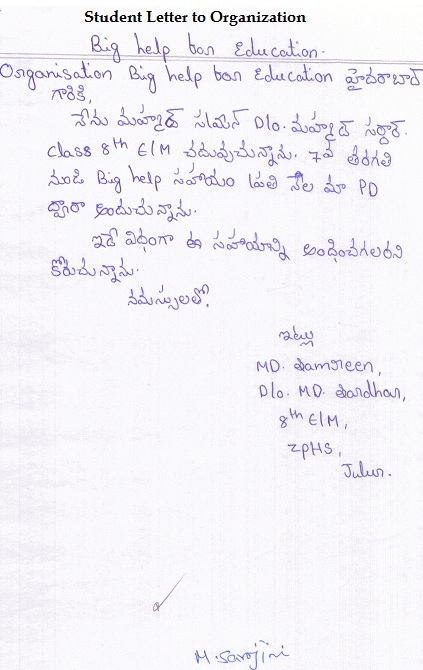 Student Letter to Organization
Big help for Education.
Organisation Big help for Education హైదరాబాద్
గారికి,
నేను మహ్మద్ సమ్రీన్ D/o. మహ్మద్ సర్దార్.
class 8th E/M చదువుచున్నాను. 7వ తరగతి
నుండి Big help సహాయం ప్రతి నెల మా PD
ద్వారా అందుచున్నాను.
ఇదే విధంగా ఈ సహాయాన్ని అందించగలరని
కోరుచున్నాను.
నమస్సులతో,
ఇట్లు
MD. Samreen,
D/o. MD. Sardhar,
8th E/M,
ZPHS,
Julur.
M. Sarojini